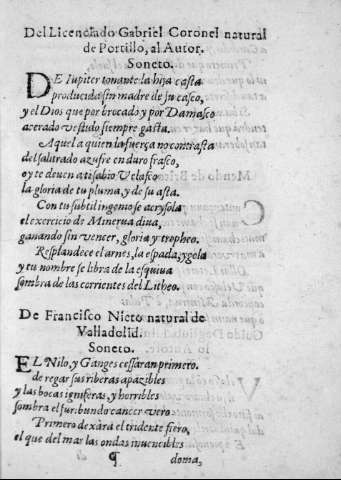 Del Licenciado Gabriel Coronel natural
de Portillo, al Autor.
Soneto.
DE Iupiter tonante la hija casta
producida sin madre de su casco,
y el Dios que por brocado y por Damasco
azerado vestido siempre gasta.
Aquel a quien la fuerça no contrasta
del salitrado azufre en duro frasco,
oy te deuen a ti sabio Velasco
la gloria de tu pluma, y de su asta.
Con tu subtil ingenio se acrysola
el exercicio de Minerua diua,
ganando sin vencer, gloria y tropheo.
Resplandece el arnes, la espada, y gola
y tu nombre se libra de la esquiua
sombra de las corrientes del Litheo.
De Francisco Nieto natural de
Valladolid.
Soneto.
EL Nilo, y Ganges cessaran primero.
de regar sus riberas apazibles
y las bocas igniferas, y horribles
sombra el furibundo cancer vero
Primero dexàra el tridente fiero,
el que del mar las ondas inuencibles
q doma,